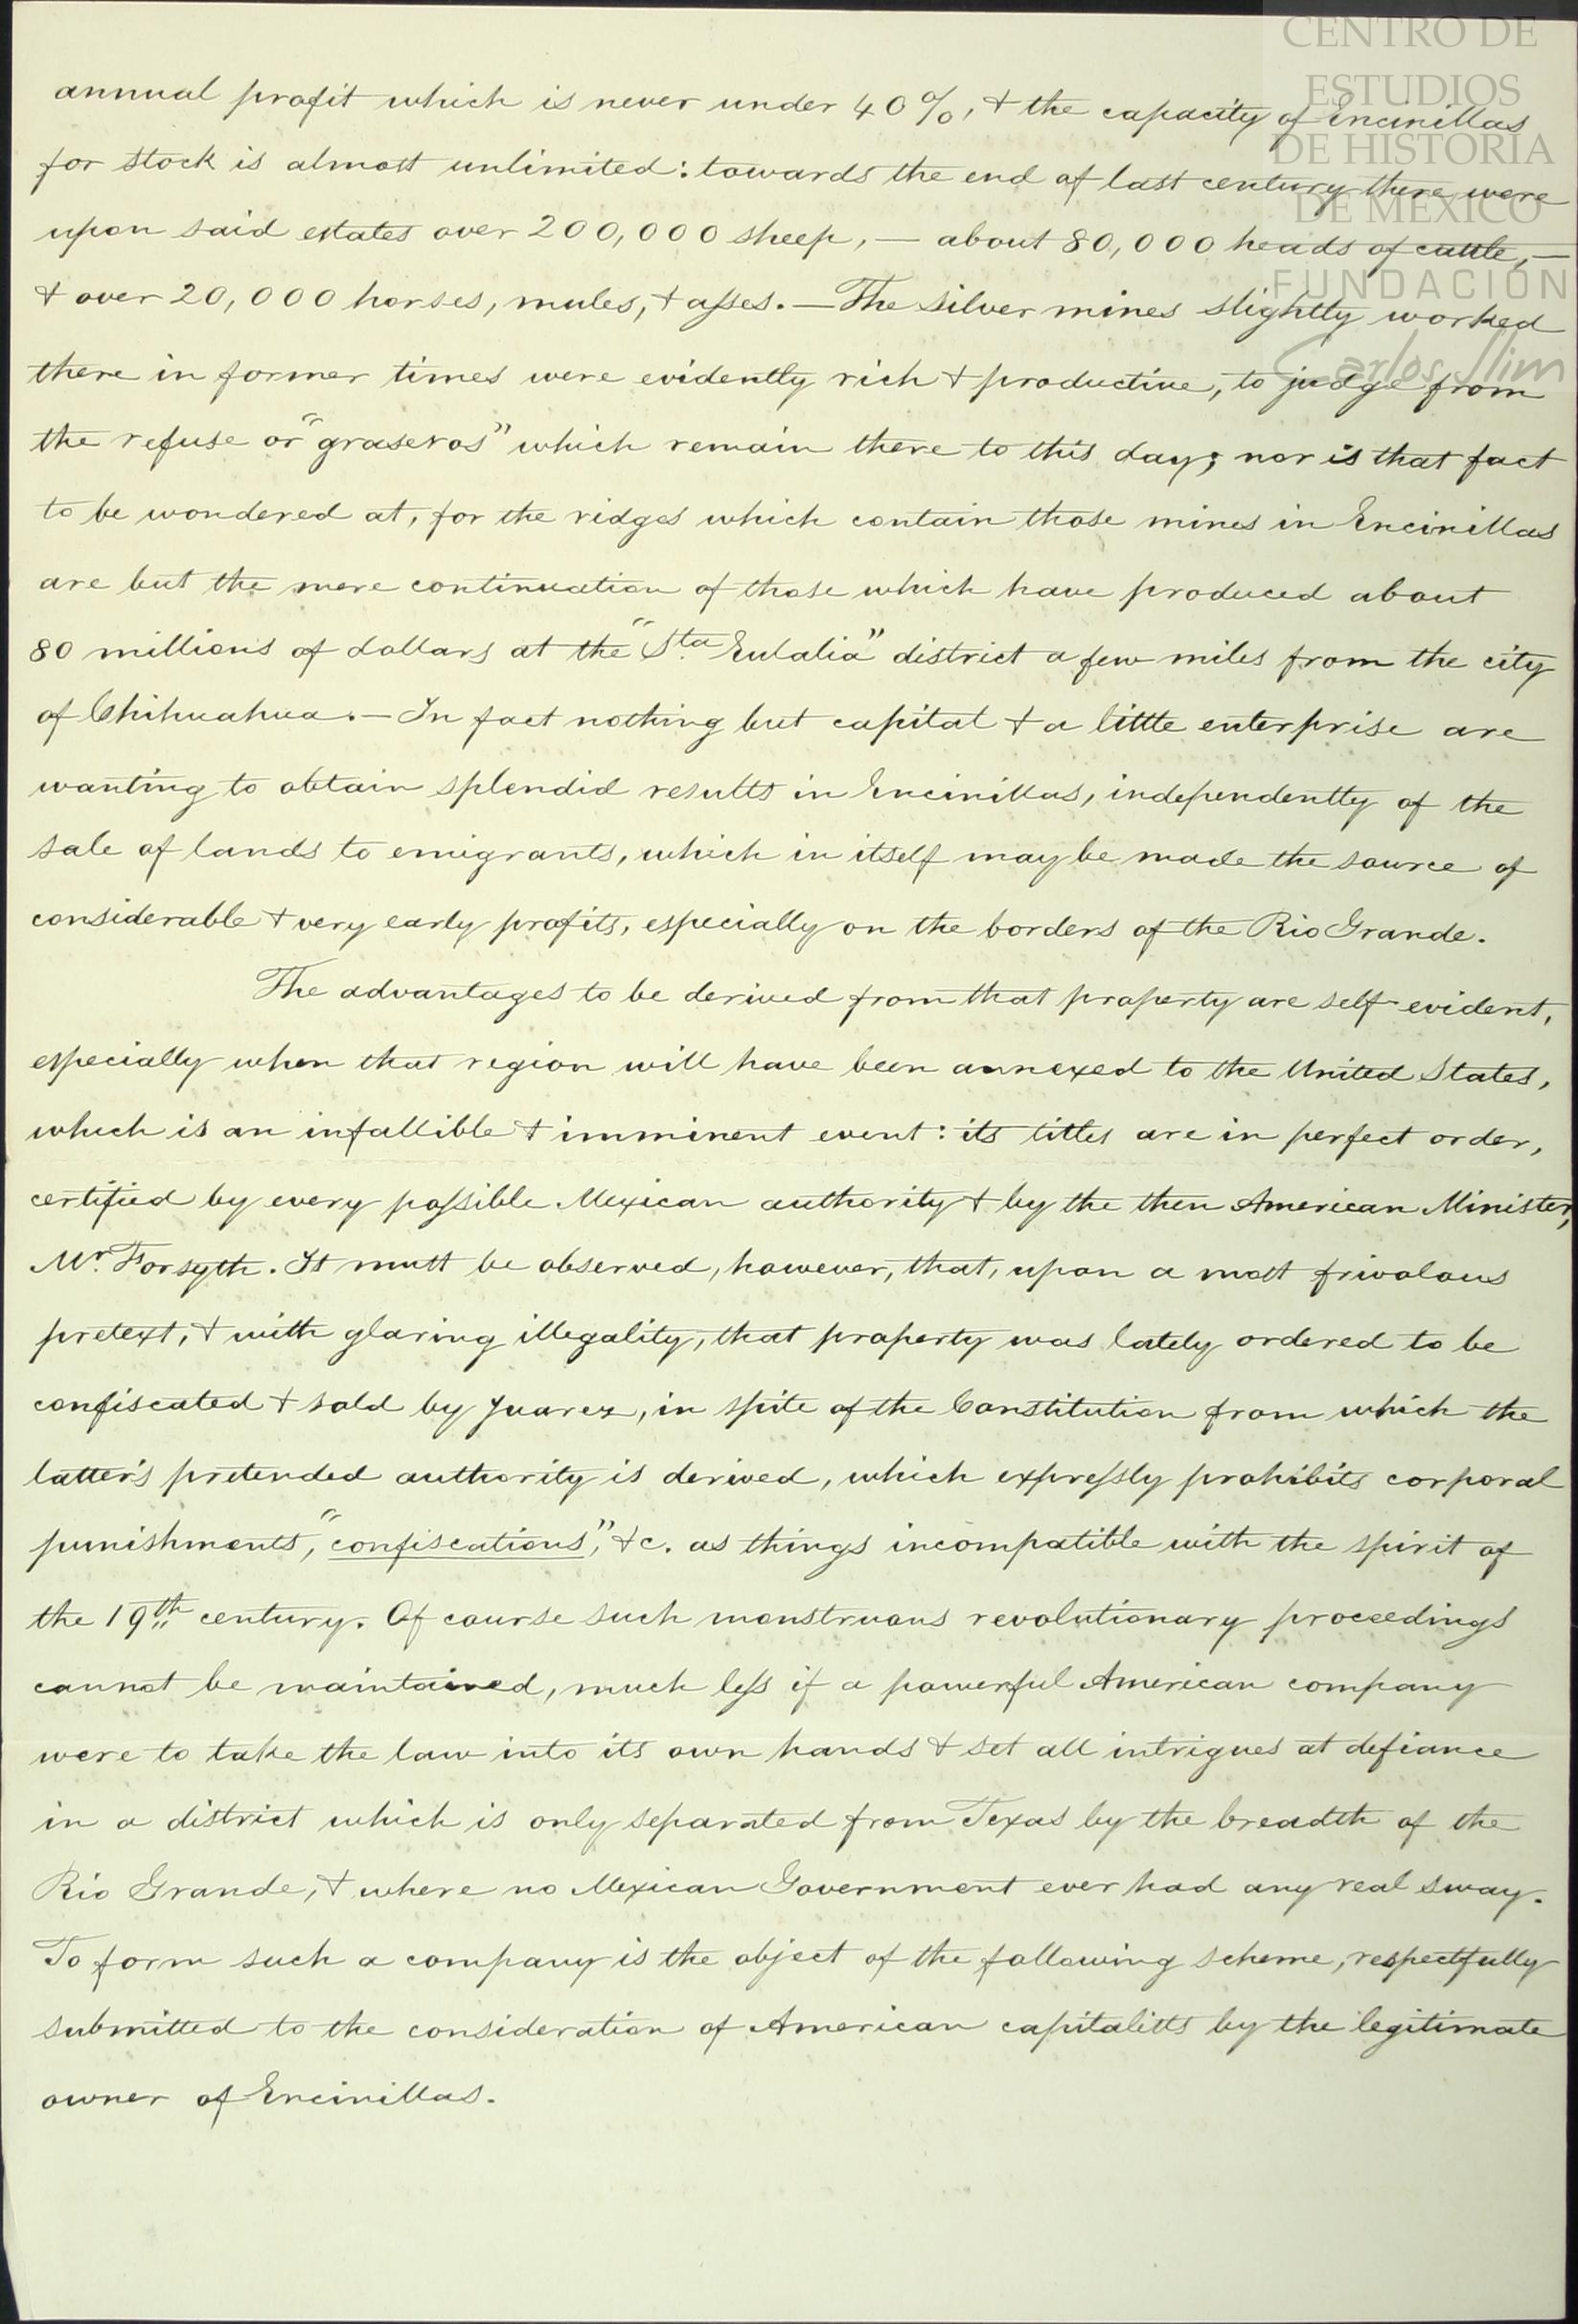 CENTRO DE
ESTUDIOS
DE HISTORIA
DE MEXICO
FUNDACIÓN
Carlos Slim
annual profit which is never under 40%, & the capacity of Encinillas
for stock is almost unlimited: towards the end of last century there were
upon said estates over 200,000 sheep, — about 80,000 heads of cattle, —
& over 20,000 horses, mules, & asses. — The silver mines slightly worked
there in former times were evidently rich & productive, to judge from
the refuse or "graseros" which remain there to this day; nor is that fact
to be wondered at, for the ridges which contain those mines in Encinillas
are but the mere continuation of those which have produced about
80 millions of dollars at the "Sta. Eulalia" district a few miles from the city
of Chihuahua. — In fact nothing but capital & a little enterprise are
wanting to obtain splendid results in Encinillas, independently of the
sale of lands to emigrants, which in itself may be made the source of
considerable & very early profits, especially on the borders of the Rio Grande.
The advantages to be derived from that property are self-evident,
especially when that region will have been annexed to the United States,
which is an infallible & imminent event: its titles are in perfect order,
certified by every possible Mexican authority & by the then American Minister,
Mr. Forsyth. It must be observed, however, that, upon a most frivolous
pretext, & with glaring illegality, that property was lately ordered to be
confiscated & sold by Juarez, in spite of the Constitution from which the
latter's pretended authority is derived, which expressly prohibits corporal
punishments, "confiscations", &c. as things incompatible with the spirit of
the 19th century. Of course such monstruous revolutionary proceedings
cannot be maintained, much less if a powerful American company
were to take the law into its own hands & set all intrigues at defiance
in a district which is only separated from Texas by the breadth of the
Rio Grande, & where no Mexican Government ever had any real sway.
To form such a company is the object of the following scheme, respectfully
submitted to the consideration of American capitalists by the legitimate
owner of Encinillas.